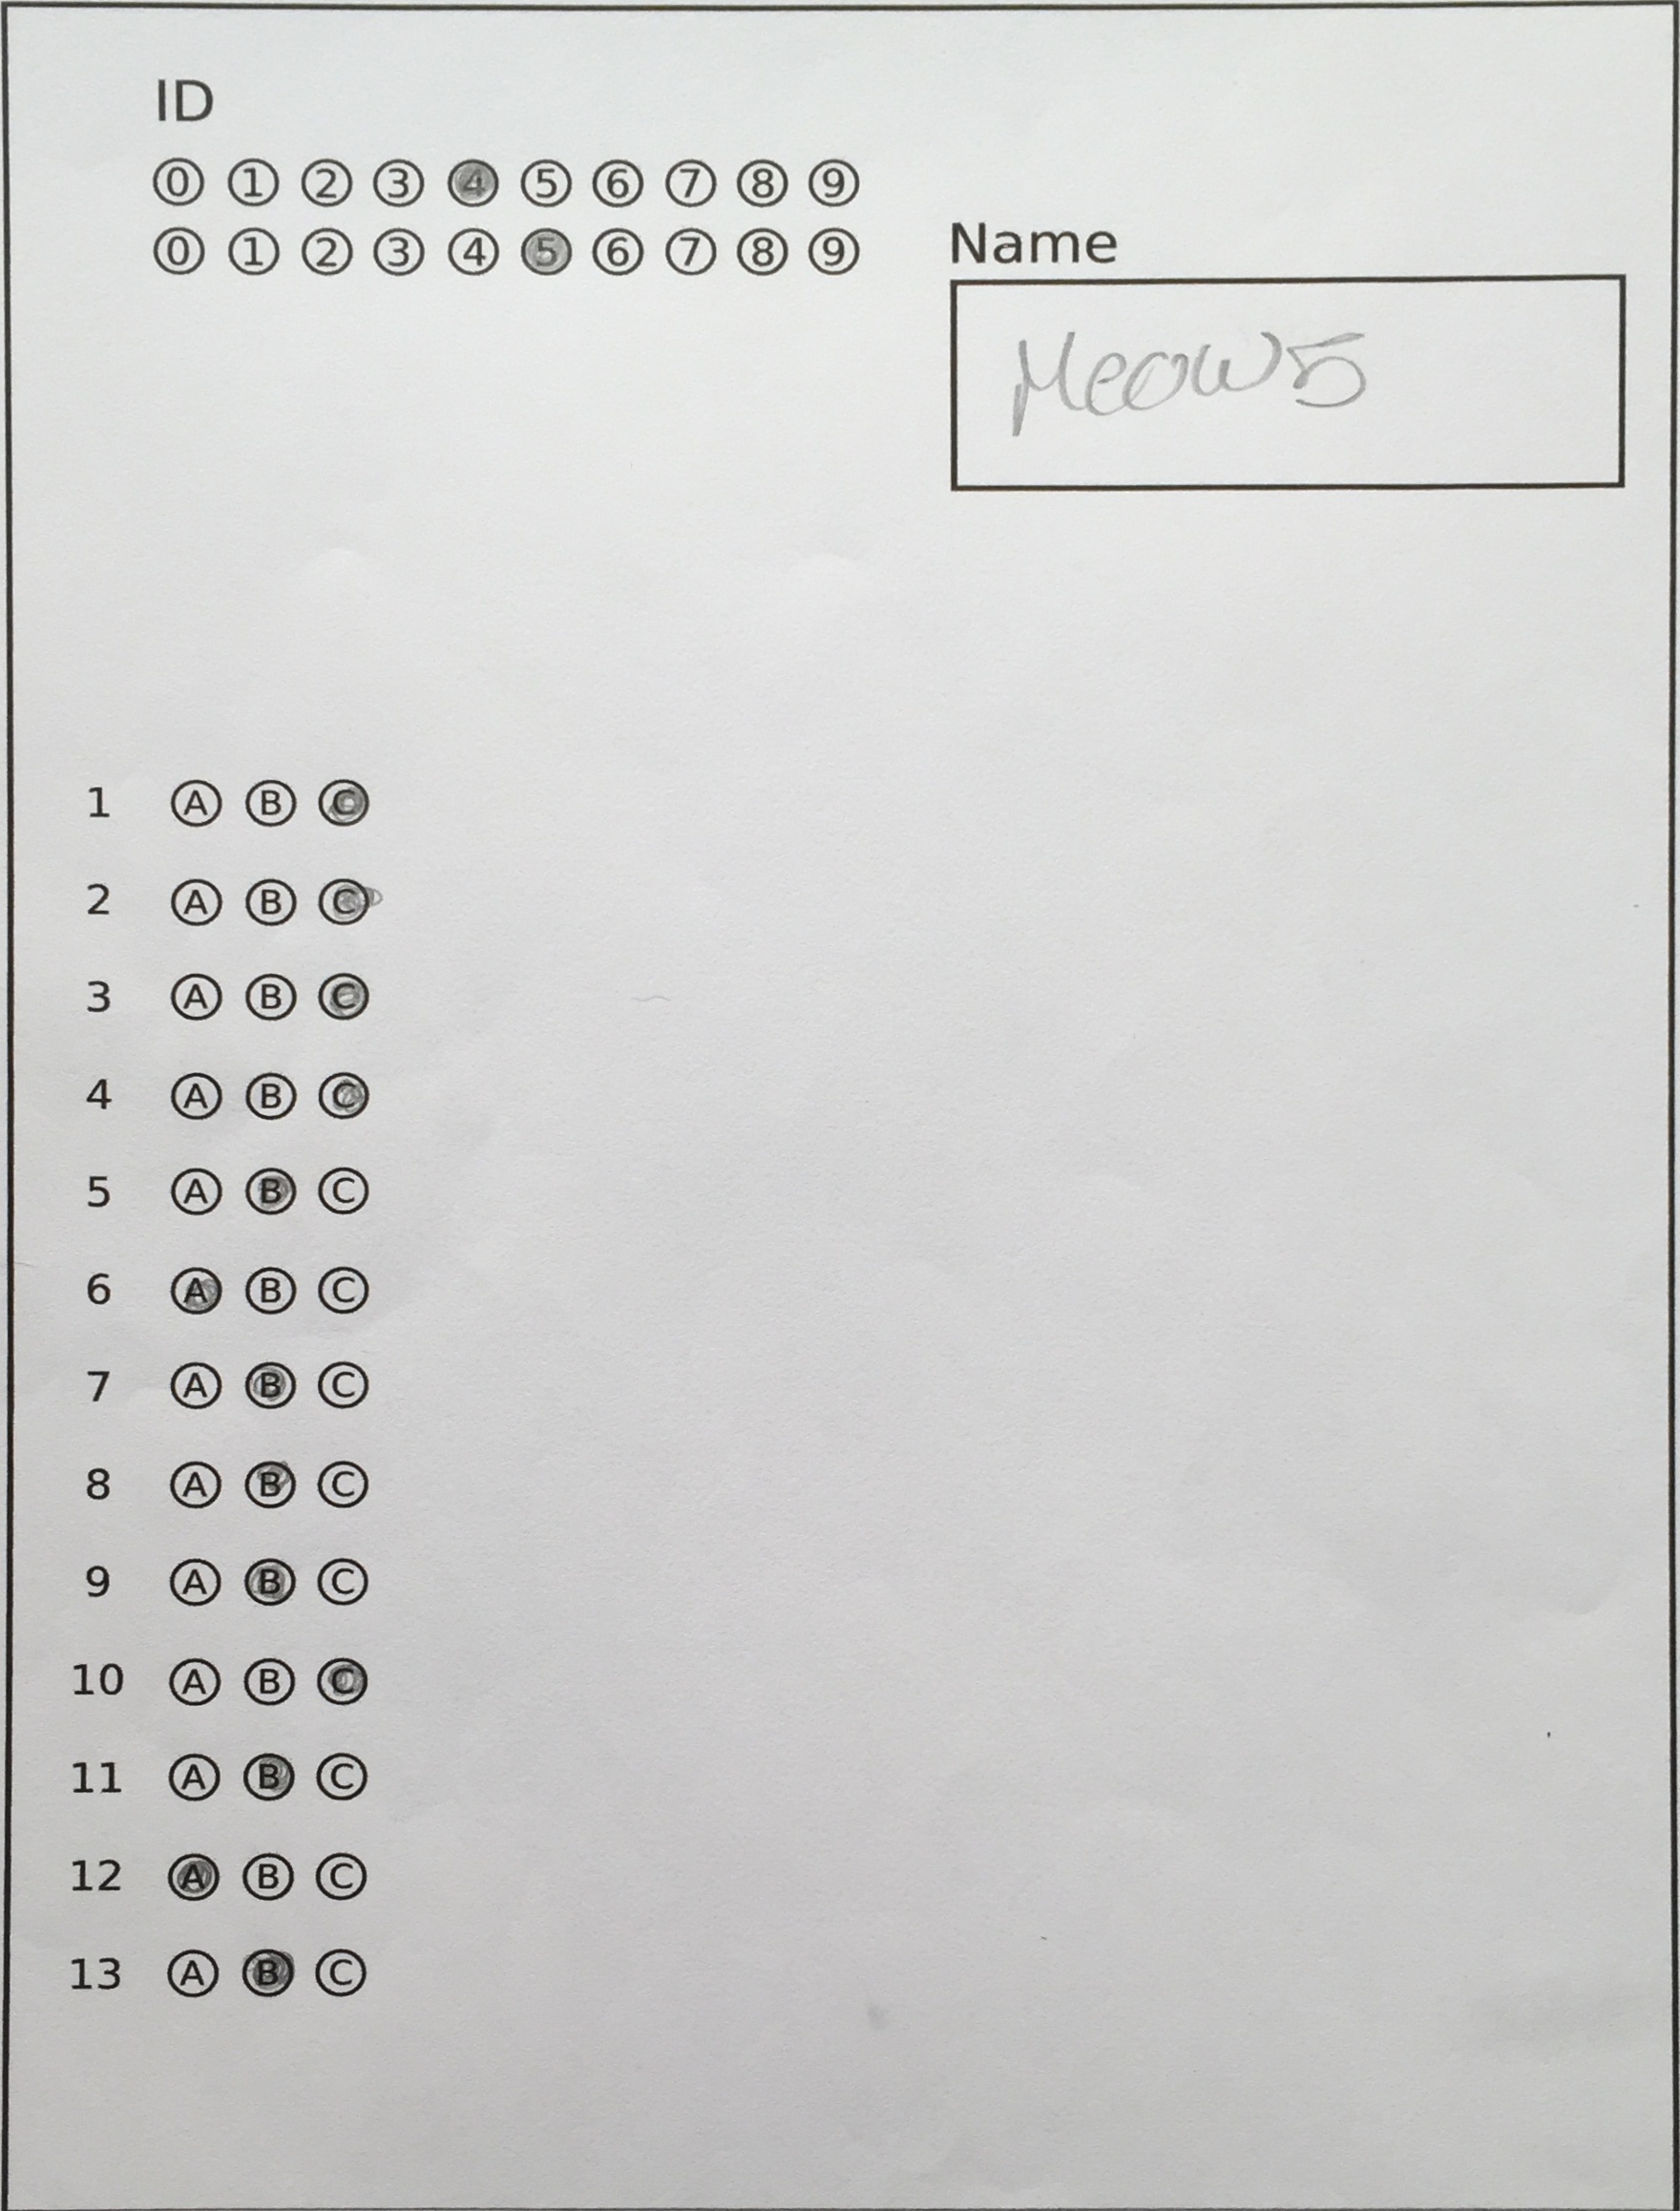 ID
0 1 2 3 4 5 6 7 8 9
0 1 2 3 4 5 6 7 8 9
Name
Meow5
1 A B C
2 A B C
3 A B C
4 A B C
5 A B C
6 A B C
7 A B C
8 A B C
9 A B C
10 A B C
11 A B C
12 A B C
13 A B C